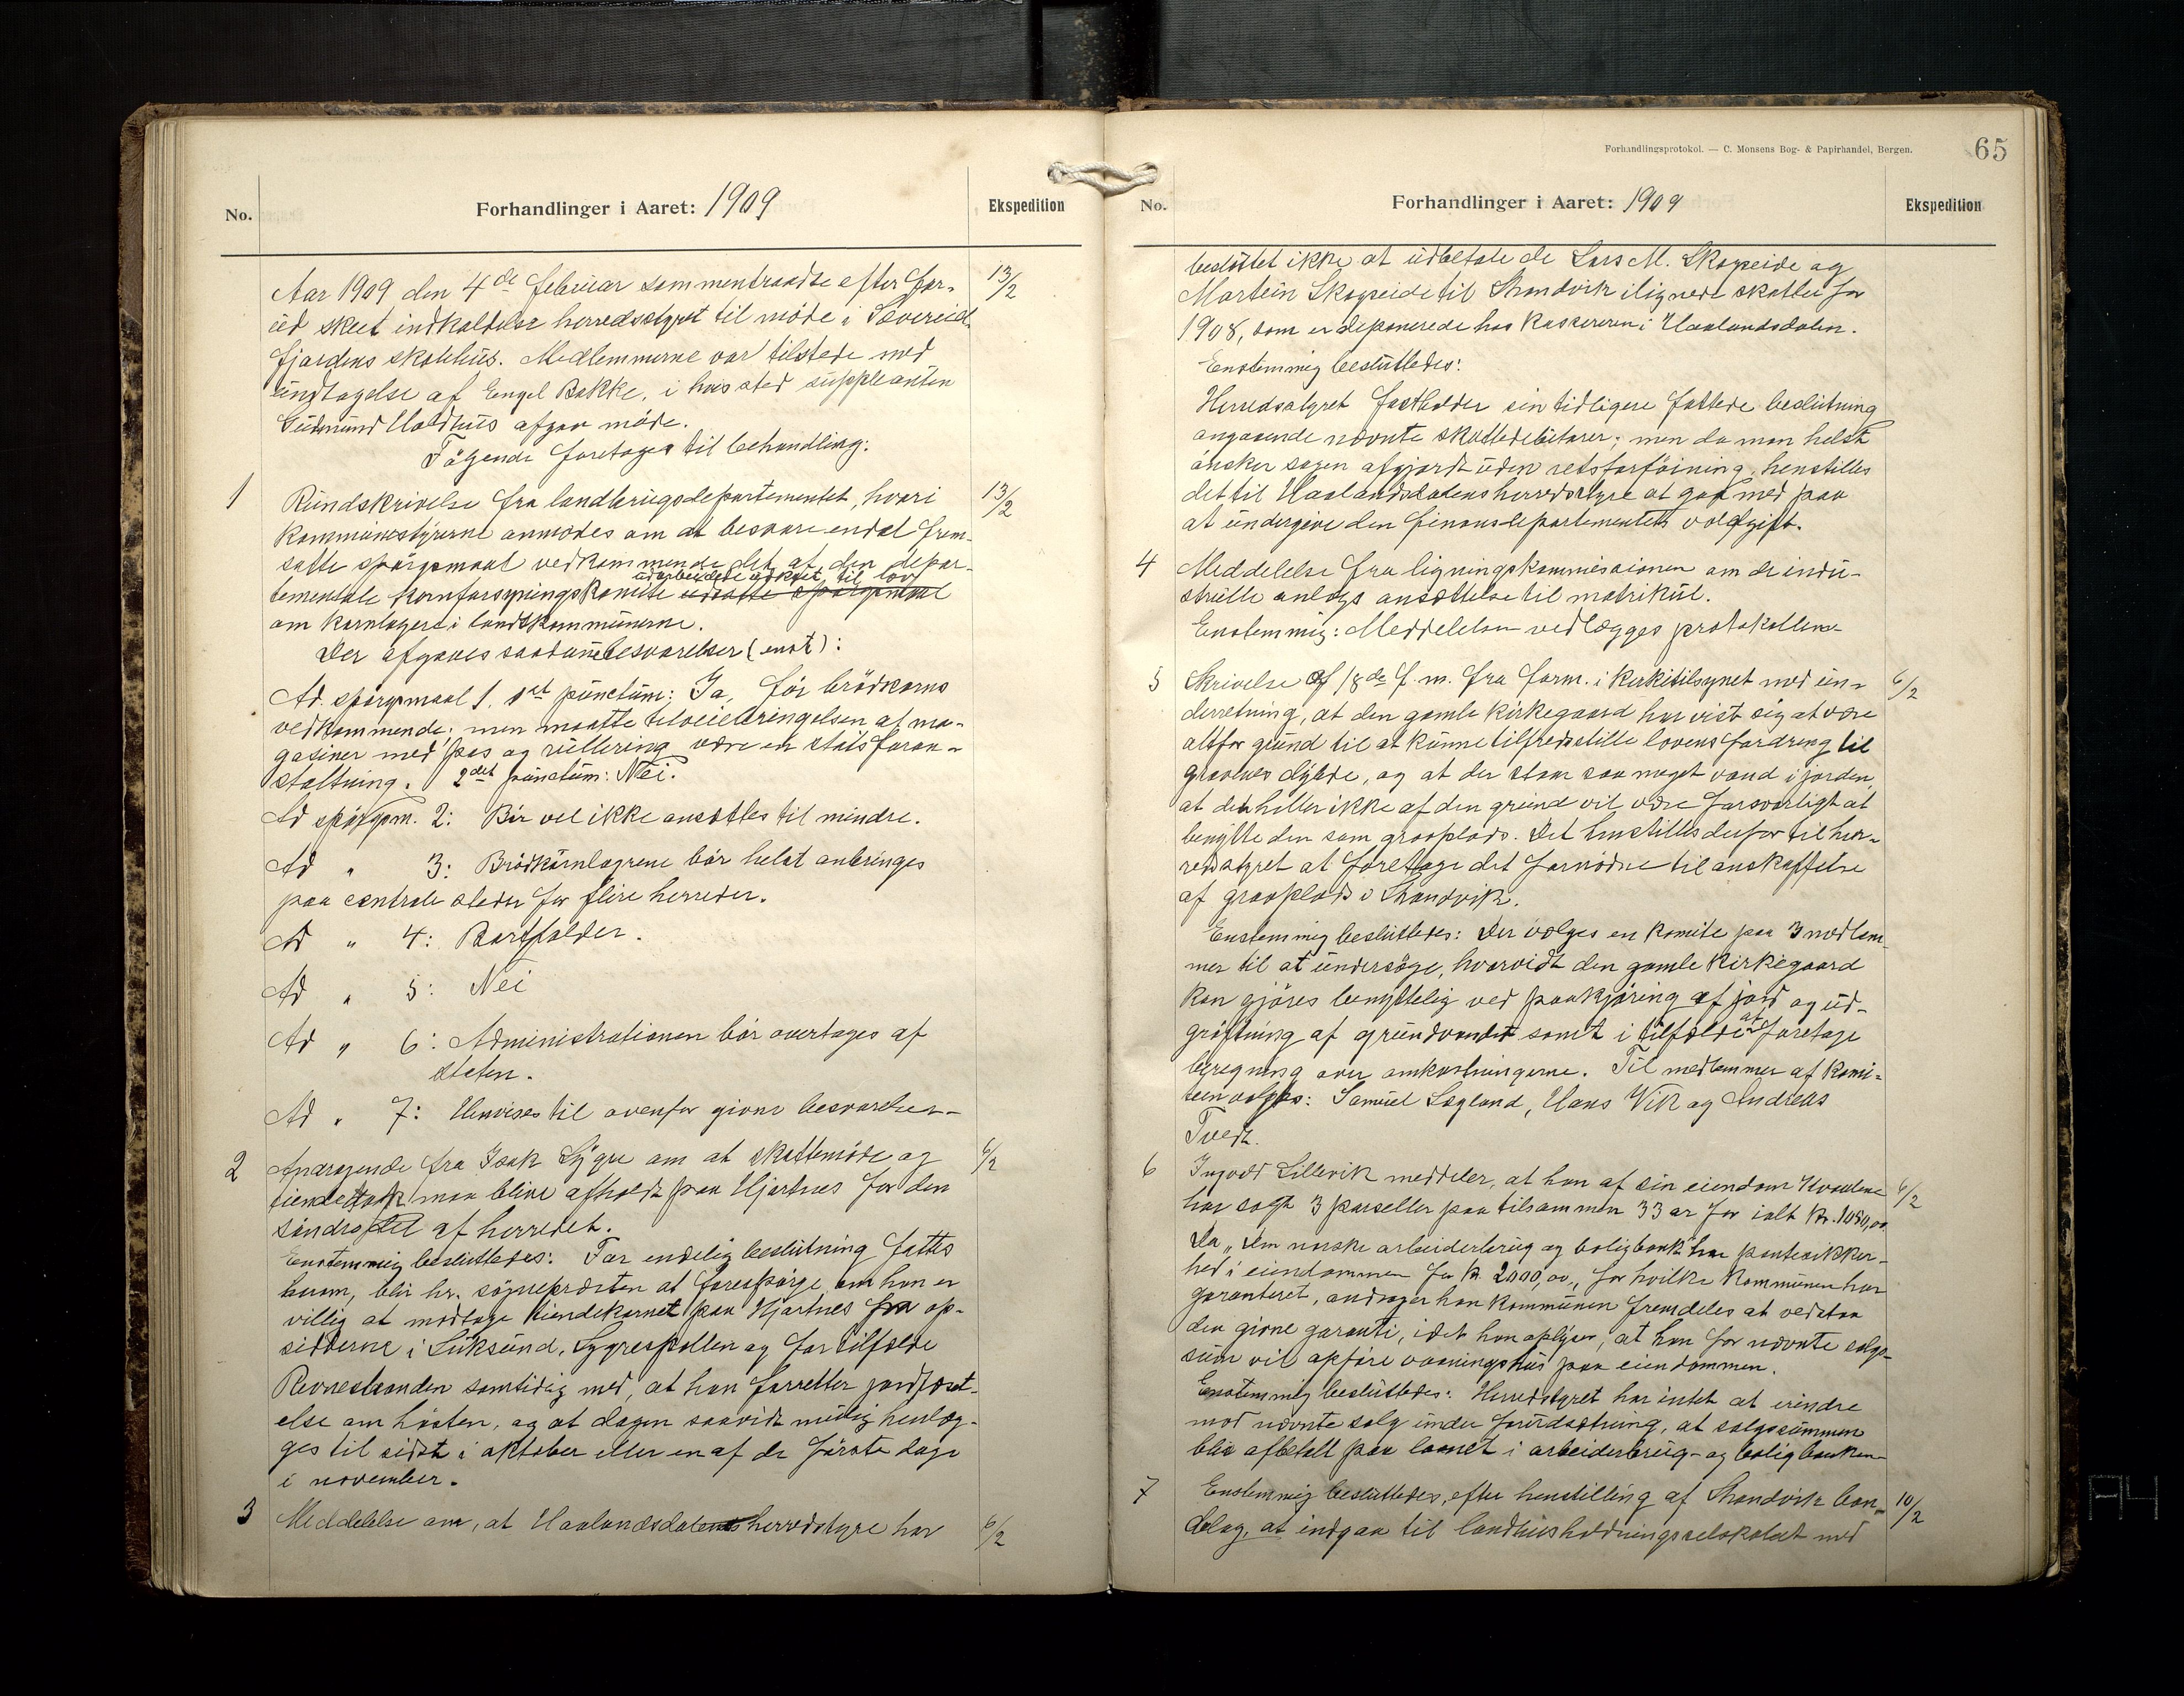 Forhandlingsprotokol. — C. Monsens Bog- & Papirhandel, Bergen.
65
No.
Forhandlinger i Aaret: 1909
Ekspedition
Aar 1909 den 4de februar sammentraadte efter for- 13/2
ud skeet indkaldelse herredsstyret til møde i Sævereid-
fjordens skolehus. Medlemmerne var tilstede med
undtagelse af Engel Bakke, i hvis sted suppleanten
Gudmund Holdhus afgav møde.
Følgende foretages til behandling:
1 Rundskrivelse fra landbrugsdepartementet, hvori 13/2
kommunestyrerne anmodes om at besvare endel frem-
satte spørgsmaal vedkommende det af den depar-
udarbeidede udkast til lov
tementale kornforsyningskomite udsatte spørgsmaal
om kornlagere i landskommunerne.
Der afgaves saadanne besvarelser (enst):
Ad spørgsmaal 1. 1st punctum: Ja, for brødkorns
vedkommende; men maatte tilveiebringelsen af ma-
gasiner med pas og rullering være en statsforan-
staltning. 2det punctum: Nei.
Ad spørgsm. 2: Bør vel ikke ansættes til mindre.
Ad " 3: Brødkornlagrene bør helst anbringes
paa centrale steder for flere herreder.
Ad " 4: Bortfalder.
Ad " 5: Nei
Ad " 6: Administrationen bør overtages af
staten.
Ad " 7: Henvises til ovenfor givne besvarelser-
2 Andragende fra Isak Lygre om at skattemøde og 6/2
tiendetak maa blive afholdt paa Hjartnes for den
søndre del af herredet.
Enstemmig besluttedes: Før endelig beslutning fattes
herom, blir hr. sogneprdsten at forespørge, om han er
villig at modtage tiendekornet paa Hjartnes fra op-
sidderne i Luksund, Lygrespollen og for tilfælde
Revnestranden samtidig med, at han forretter jordfæst-
else om høsten, og at dagen saavidt mulig henlæg-
ges til sidst i oktober eller en af de første dage
i november.
3 Meddelelse om, at Haalandsdalens herredstyre har 6/2
No.
Forhandlinger i Aaret: 1909
Ekspedition
besluttet ikke at udbetale de Lars M. Skogseide og
Martin Skogseide til Strandvik ilignede skatter for
1908, som er deponerede hos kassereren i Haalandsdalen.
Enstemmig besluttedes:
Herredsstyret fastholder sin tidligere fattede beslutning
angaaende nævnte skattedebitorer; men da man helst
ønsker sagen afgjordt uden retsforføining, henstilles
det til Haalandsdalens herredsstyre at gaa med paa
at undergive den finansdepartementets voldgift.
4 Meddelelse fra ligningskommissionen om de indu-
strielle anlægs ansættelse til matrikul.
Enstemmig: Meddelelsen vedlægges protokollen-
5 Skrivelse af 18de f. m. fra form. i kirketilsynet med un- 6/2
derretning, at den gamle kirkegaard har vist sig at være
altfor grund til at kunne tilfredsstille lovens fordring til
gravenes dybde, og at der staar saa meget vand i jorden,
at det heller ikke af den grund vil være forsvarligt at
benytte den som gravplads. Det henstilles derfor til her-
redsstyret at foretage det fornødne til anskaffelse
af gravplads i Strandvik.
Enstemmig besluttedes: Der vælges en komite paa 3 medlem-
mer til at undersøge, hvorvidt den gamle kirkegaard
kan gjøres benyttelig ved paakjøring af jord og ud-
grøftning af grundvandet samt i tilfælde at foretage
beregning over omkostningerne. Til medlemmer af komi-
teen valges: Samuel Søgland, Hans Vik og Andreas
Tvedt.
6 Ingvald Lillevik meddeler, at han af sin eiendom Kvalene 6/2
har solgt 3 parseller paa tilsammen 33 ar for ialt kr. 1050,00
Da „Den norske arbeiderbrug og boligbank" har pantesikker-
hed i eiendommen for kr. 2000,00, for hvilke kommunen har
garanteret, andrager han kommunen fremdeles at vedstaa
den givne garanti, idet han oplyser, at han for nævnte salgs-
sum vil opføre vaaningshus paa eiendommen.
Enstemmig besluttedes: Herredstyret har intet at erindre
mod nævnte salg under forudsætning, at salgssummen
blir afbetalt paa laanet i arbeiderbrug- og boligbanken-
7 Enstemmig besluttedes, efter henstilling af Strandvik bon- 10/2
delag, at indgaa til landhusholdningsselskabet med